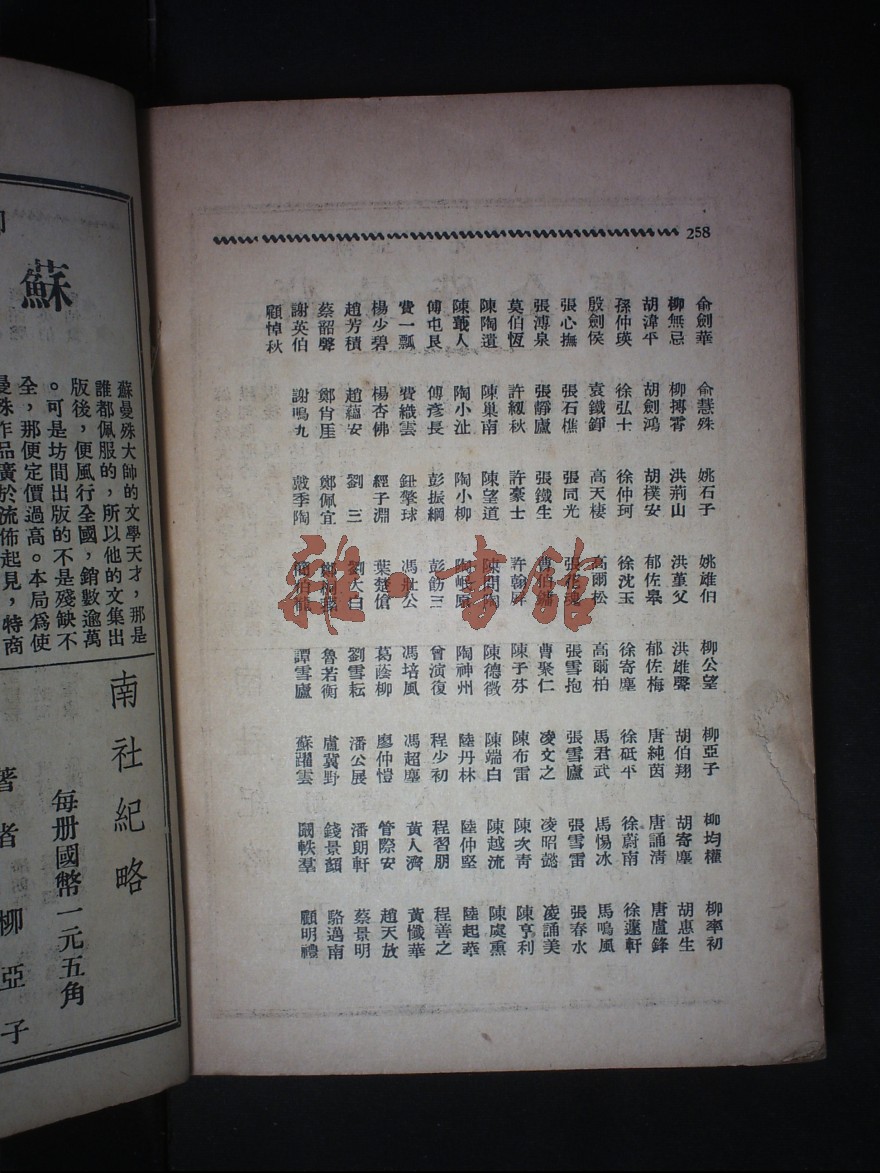 258
俞劍華 俞慧殊 姚石子 姚雄伯 柳公望 柳亞子 柳均權 柳率初
柳無忌 柳搏霄 洪荊山 洪菫父 洪雄聲 胡伯翔 胡寄塵 胡惠生
胡漳平 胡劍鴻 胡樸安 郁佐皋 郁佐梅 唐純茵 唐誦清 唐盧鋒
孫仲瑛 徐弘士 徐仲珂 徐沈玉 徐寄塵 徐砥平 徐蔚南 徐蘧軒
殷劍侯 袁鐵錚 高天棲 高爾松 高爾柏 馬君武 馬惕冰 馬鳴風
張心撫 張石樵 張同光 張花魂 張雪抱 張雪廬 張雪雷 張春水
張溥泉 張靜廬 張鐵生 曹伯鏞 曹聚仁 凌文之 凌昭懿 凌誦美
莫伯恆 許紉秋 許豪士 許翰屏 陳子芬 陳布雷 陳次青 陳亨利
陳陶遺 陳巢南 陳望道 陳問陶 陳德徵 陳端白 陳越流 陳處熏
陳蛻人 陶小沚 陶小柳 陶神州 陸丹林 陸仲堅 陸起華
傅屯艮 傅彥長 彭振綱 彭飭三 曾演復 程少初 程習朋 程善之
費一瓢 費織雲 鈕擎球 馮壯公 馮培風 馮超塵 黃人濟 黃懺華
楊少碧 楊杏佛 經子淵 葉楚傖 葛蔭柳 廖仲愷 管際安 趙天放
趙芳積 趙蘊安 劉三 劉大白 劉雪耘 潘公展 潘朗軒 蔡景明
蔡韶聲 鄭肖厓 鄭佩宜 鄭桐蓀 魯若衡 盧冀野 錢景顏 駱邁南
謝英伯 謝鳴九 戴季陶 譚雪廬 蘇躍雲 闞軼羣 顧明禮
顧悼秋
蘇
蘇曼殊大師的文學天才，那是
誰都佩服的，所以他的文集出
版後，便風行全國，銷數逾萬
。可是坊間出版的不是殘缺不
全，那便定價過高。本局爲使
曼殊作品廣於流佈起見，特商
南社紀略
每冊國幣一元五角
著者 柳亞子
雜·書館